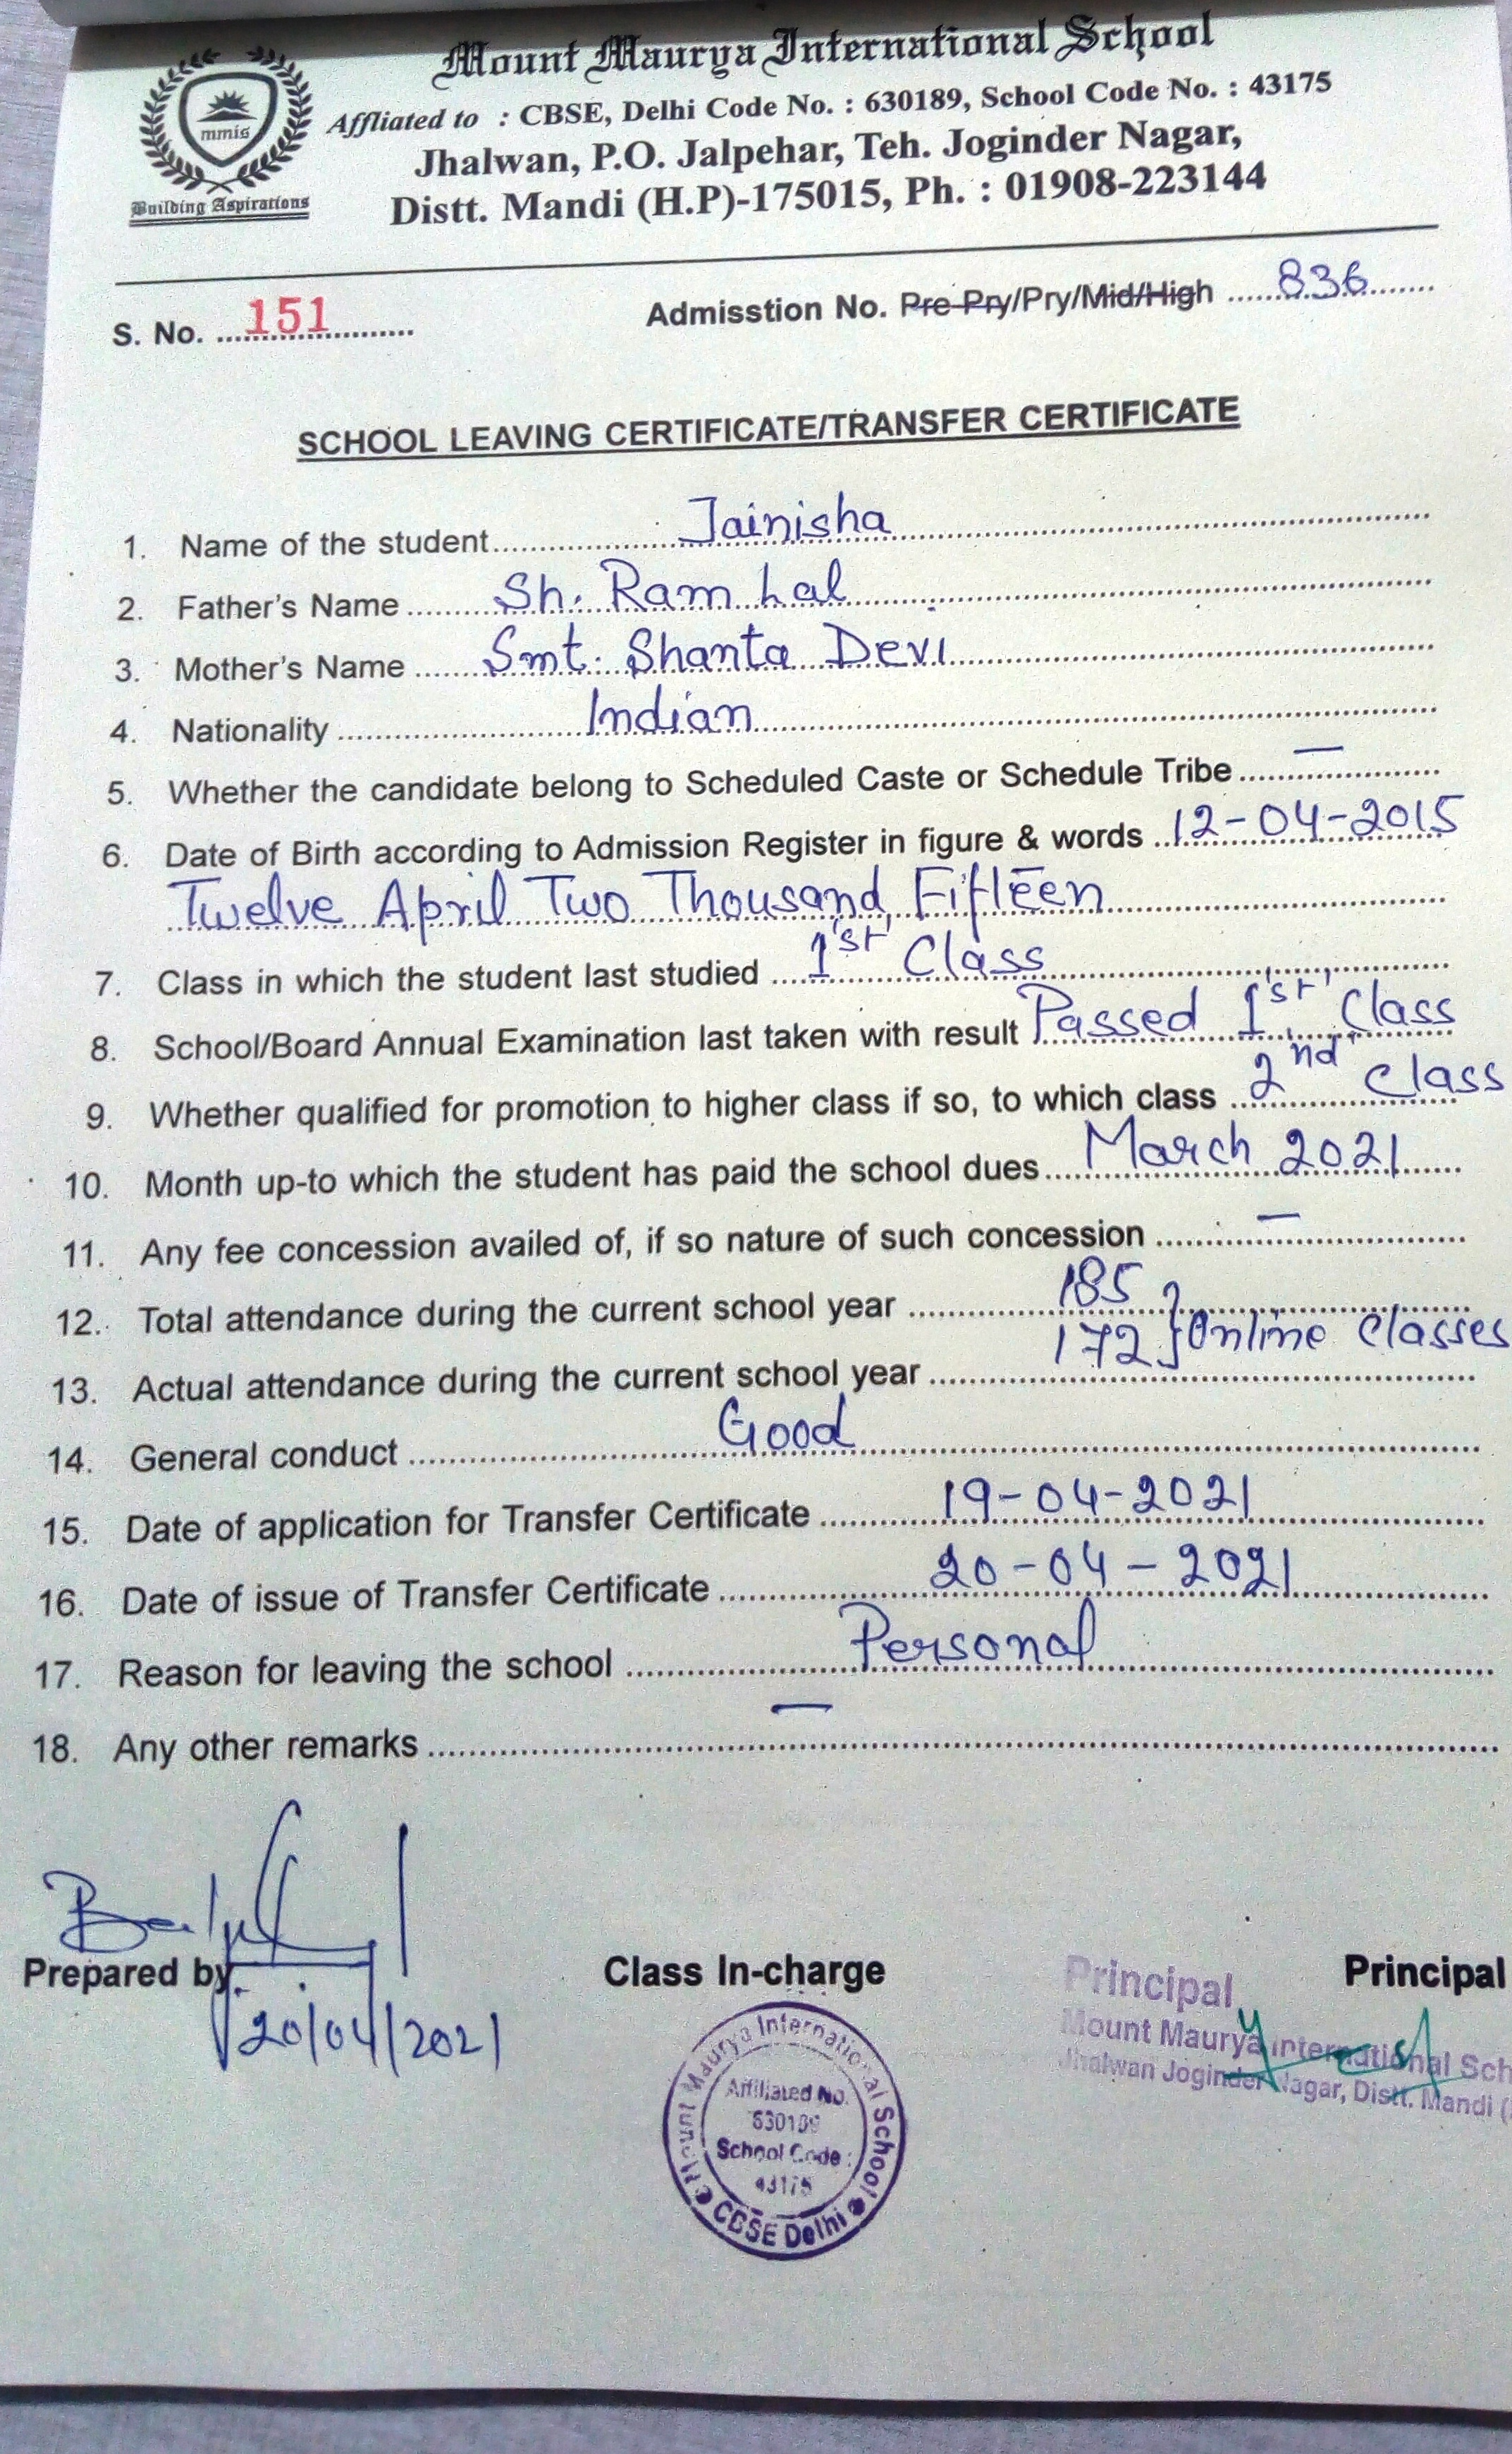 Mount Maurya International School
mmis
Building Aspirations
Affliated to : CBSE, Delhi Code No. : 630189, School Code No. : 43175
Jhalwan, P.O. Jalpehar, Teh. Joginder Nagar,
Distt. Mandi (H.P)-175015, Ph. : 01908-223144
S. No. 151
Admisstion No. Pre-Pry/Pry/Mid/High 836
SCHOOL LEAVING CERTIFICATE/TRANSFER CERTIFICATE
1. Name of the student Jainisha
2. Father's Name Sh. Ram Lal
3. Mother's Name Smt. Shanta Devi
4. Nationality Indian
5. Whether the candidate belong to Scheduled Caste or Schedule Tribe —
6. Date of Birth according to Admission Register in figure & words 12-04-2015
Twelve April Two Thousand Fifteen
7. Class in which the student last studied 1'st' Class
8. School/Board Annual Examination last taken with result Passed 1'st' Class
9. Whether qualified for promotion to higher class if so, to which class 2'nd' Class
10. Month up-to which the student has paid the school dues March 2021
11. Any fee concession availed of, if so nature of such concession —
12. Total attendance during the current school year 185 } Online Classes
13. Actual attendance during the current school year 172
14. General conduct Good
15. Date of application for Transfer Certificate 19-04-2021
16. Date of issue of Transfer Certificate 20-04-2021
17. Reason for leaving the school Personal
18. Any other remarks —
Prepared by
20/04/2021
Class In-charge
Principal
Principal
Mount Maurya International Sch
Jhalwan Joginder Nagar, Distt. Mandi (
Mount Maurya International School
Affiliated No.
630189
School Code :
43175
CBSE Delhi